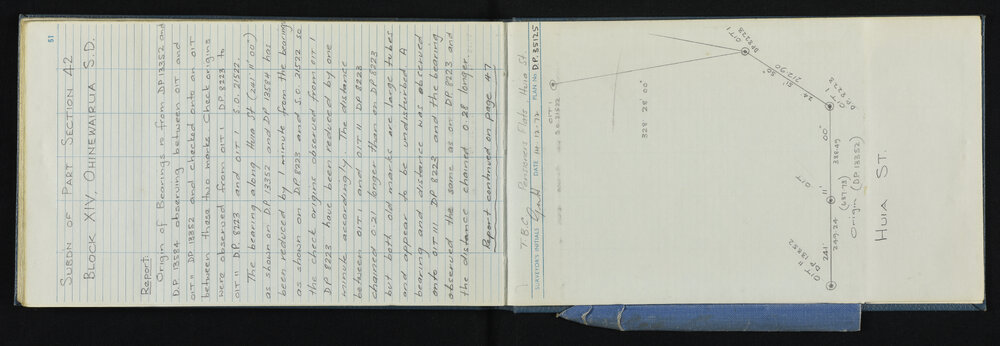 51
SUBDN OF PART SECTION 42
BLOCK XIV, OHINEWAIRUA S.D.
Report:
Origin of Bearings is from DP 13352 and
D.P. 13584 observing between OIT and
OIT" DP 13352 and checked onto an OIT
between these two marks. Check origins
were observed from OIT I D.P. 8223 to
OIT" D.P. 8223 and OIT I S.O. 21522.
The bearing along Huia St (241° 11' 00")
as shown on DP 13352 and DP 13584 has
been reduced by 1 minute from the bearings
as shown on DP 8223 and S.O. 21522 so
the check origins observed from OIT I
DP 8223 have been reduced by one
minute accordingly. The distance
between OIT I and OIT II DP 8223
chained 0.21 longer than on DP 8223
but both old marks are large tubes
and appear to be undisturbed. A
bearing and distance was observed
onto OIT III DP 8223 and the bearing
observed the same as on DP 8223 and
the distance chained 0.28 longer.
Report continued on page 47
T.B.C. Pensioners Flats, Huia St
SURVEYOR'S INITIALS DATE 14.12.72 PLAN No. D.P. 35125
OIT I
S.O. 21522
328 28 00"
OIT I
DP 8223
24 51' 30"
212.90
OIT II
DP 8223
00"
338.49
OIT
11'
(687.73)
Origin (DP 13352)
249.24
241°
OIT" 13352
DP
HUIA ST.